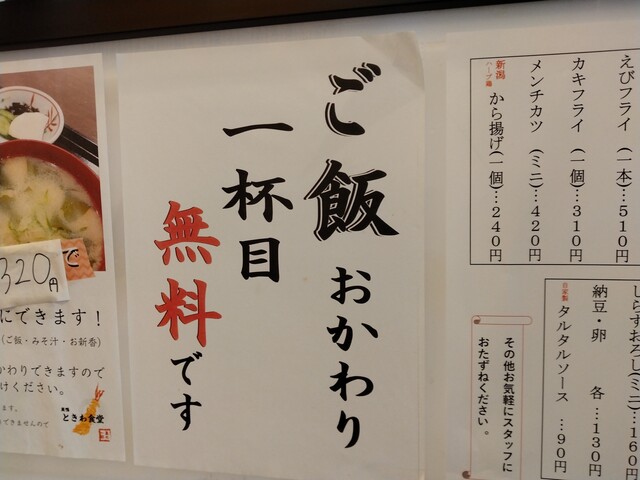 ご飯おかわり
一杯目
無料です
えびフライ(一本)…510円
カキフライ(一個)…310円
メンチカツ(ミニ)…420円
新潟ハーブ鶏 から揚げ(一個)…240円
しらすおろし(ミニ)…160円
納豆・卵 各…130円
自家製 タルタルソース…90円
その他お気軽にスタッフに
おたずねください。
で
320円
にできます!
(ご飯・みそ汁・お新香)
かわりできますので
けください。
ます。
できませんので
ときわ食堂